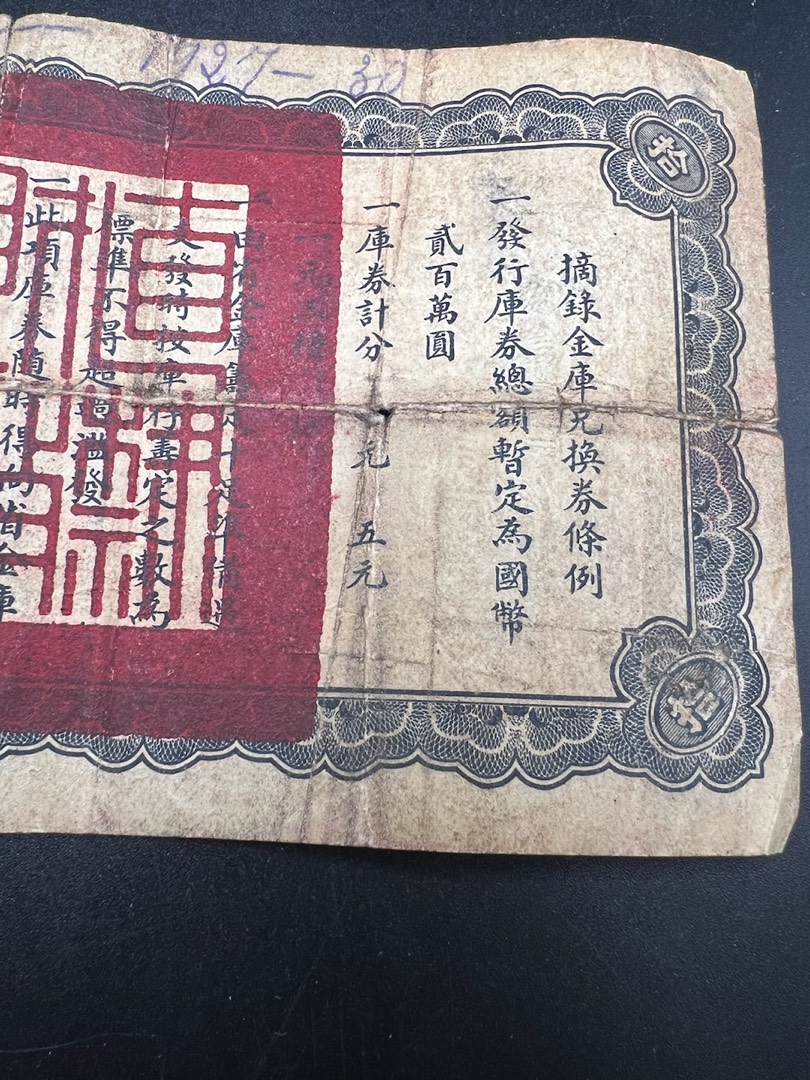 1927-30
拾
摘錄金庫兌換券條例
一發行庫券總額暫定為國幣
貳百萬圓
一庫券計分 元 五元
一由省金庫籌足十足準備
支發時按庫存書定之數為
標準不得超過濫發
一此項庫券隨時得向省金庫
拾